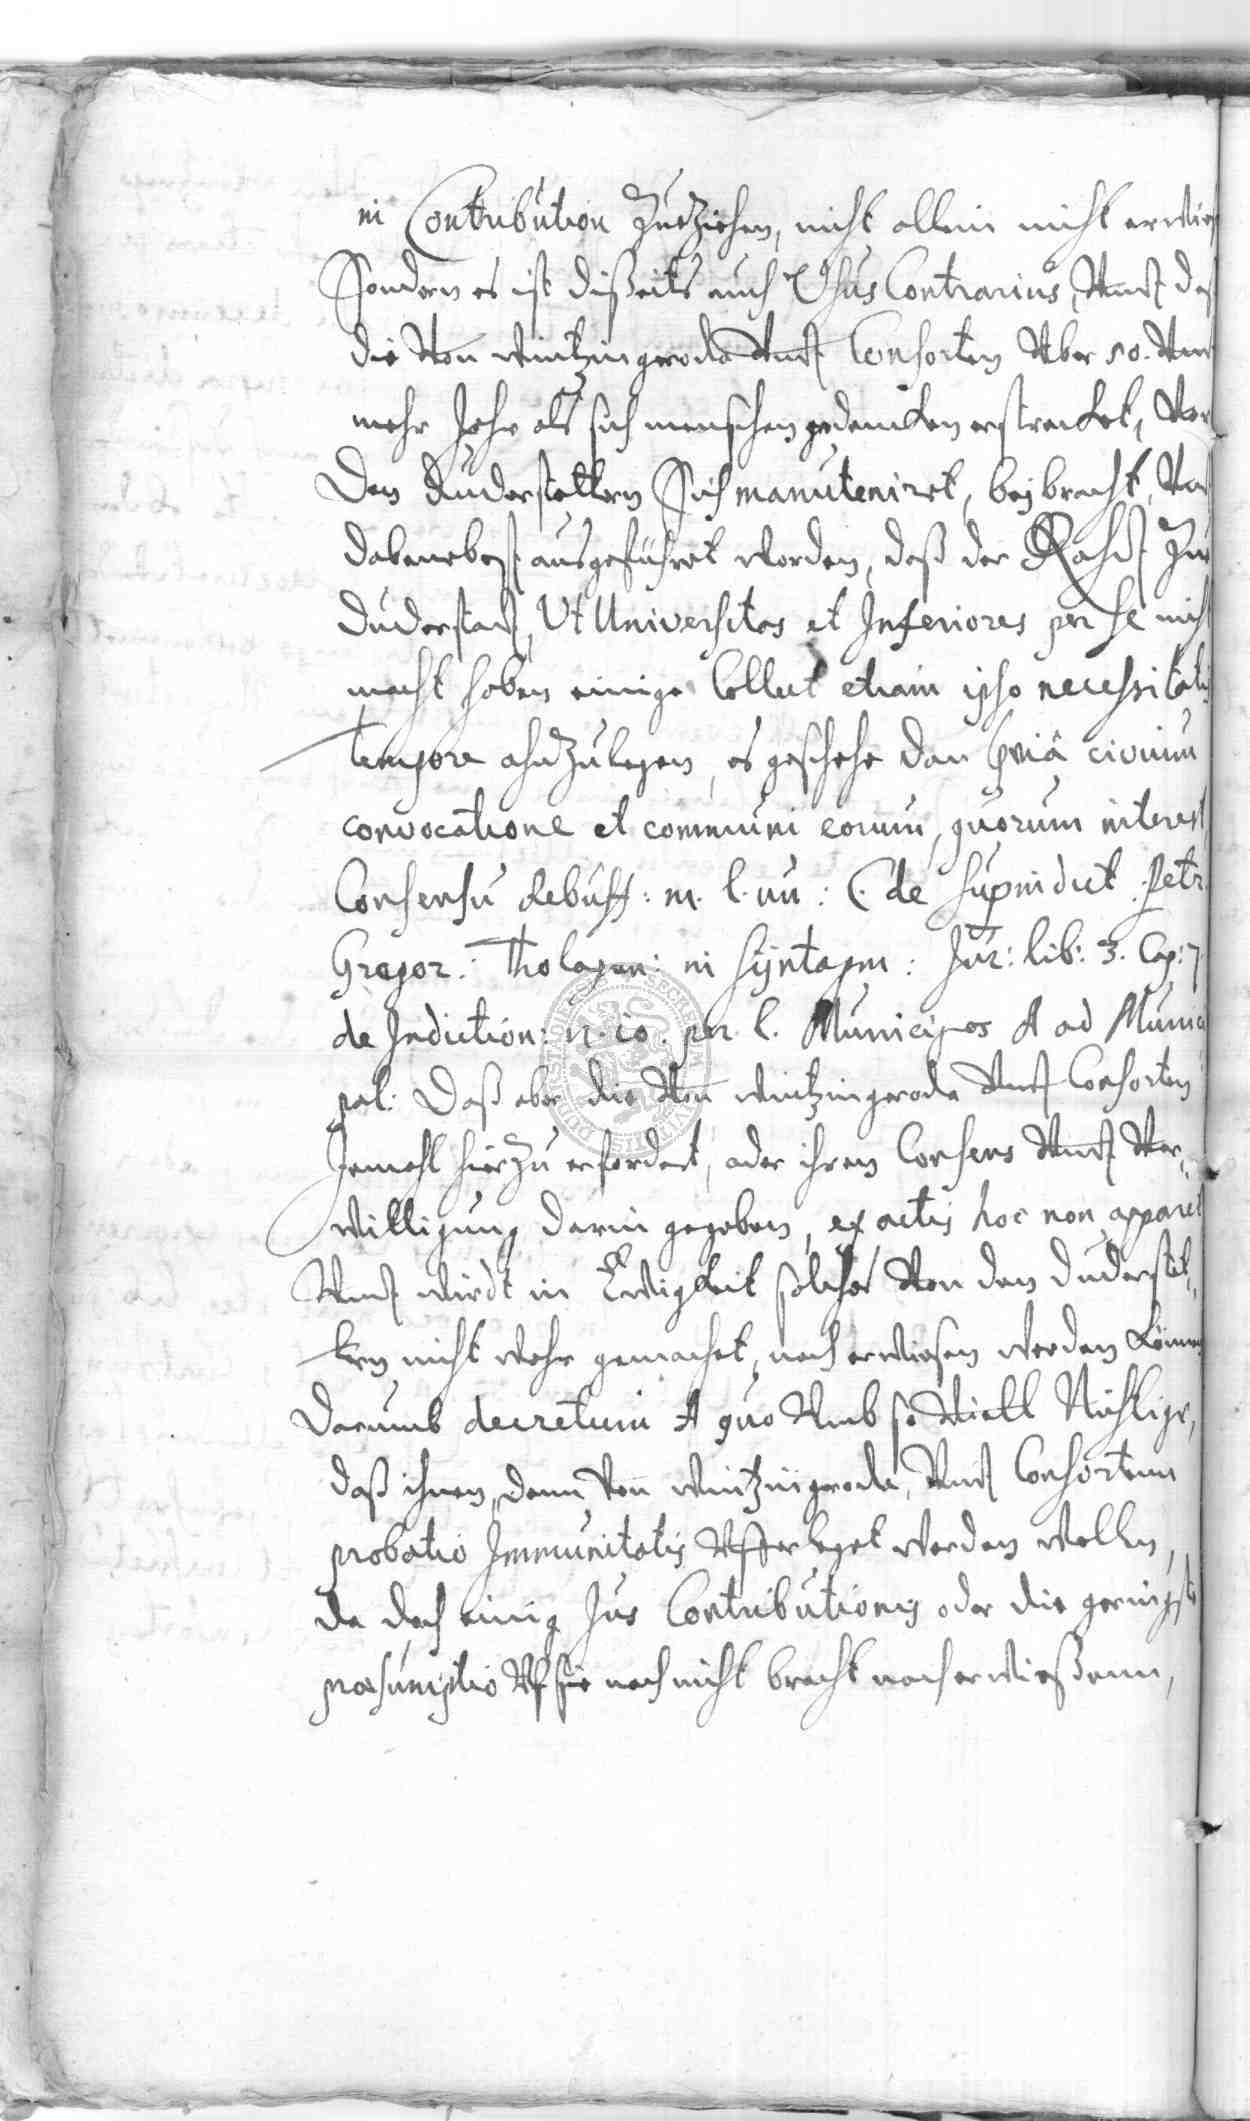 in Contribution Zuziehen, nicht allein nicht erwies
Sondern es ist dißeits auch Usus Contrarius, Undt daß
die Von Wintzingeroda Undt Consorten Uber 50. Und
mehr Jahr als sich menschen gedencken erstrecket, Vor
Den Duderstettern Sich manuteniret, beÿbracht, Und
dabenebest ausgeführet worden, daß der Rahdt Zu
Duderstadt, Ut Universitas et Inferiores per se nicht
macht haben einige Collect etiam ipso necessitatis
tempore ahnZulegen, es geschehe dan praevia civium
convocatione et communi eorum, quorum interest
Consensu Rebuff: in l. un: C. de Superindict: Petr.
Gregor: Tholosan: in Sÿntagm: Jur: lib: 3. Cap: 7.
de Indiction: n. 10. per l. Municipes ad Munici
pal: Daß aber die Von Wintzingeroda Undt Consorten
Jemahl hierZu erfordert, oder ihren Consens Undt Ver-
willigung darin gegeben, ex actis hoc non apparet
Undt wirdt in Ewigkeit solches Von den Duderstet-
tern nicht wahr gemachet, noch erwiesen werden können
Darumb decretum A quo Umb so Viell Nichtiger,
daß ihnen, denen Von Wintzingeroda, Undt Consortenn
probatio Immunitatis Ufferleget werden wollen,
da doch einig Jus Contributionis oder die geringste
praesumptio Uff sie noch nicht bracht noch erwießenn,
SECRETUM CIVITATIS